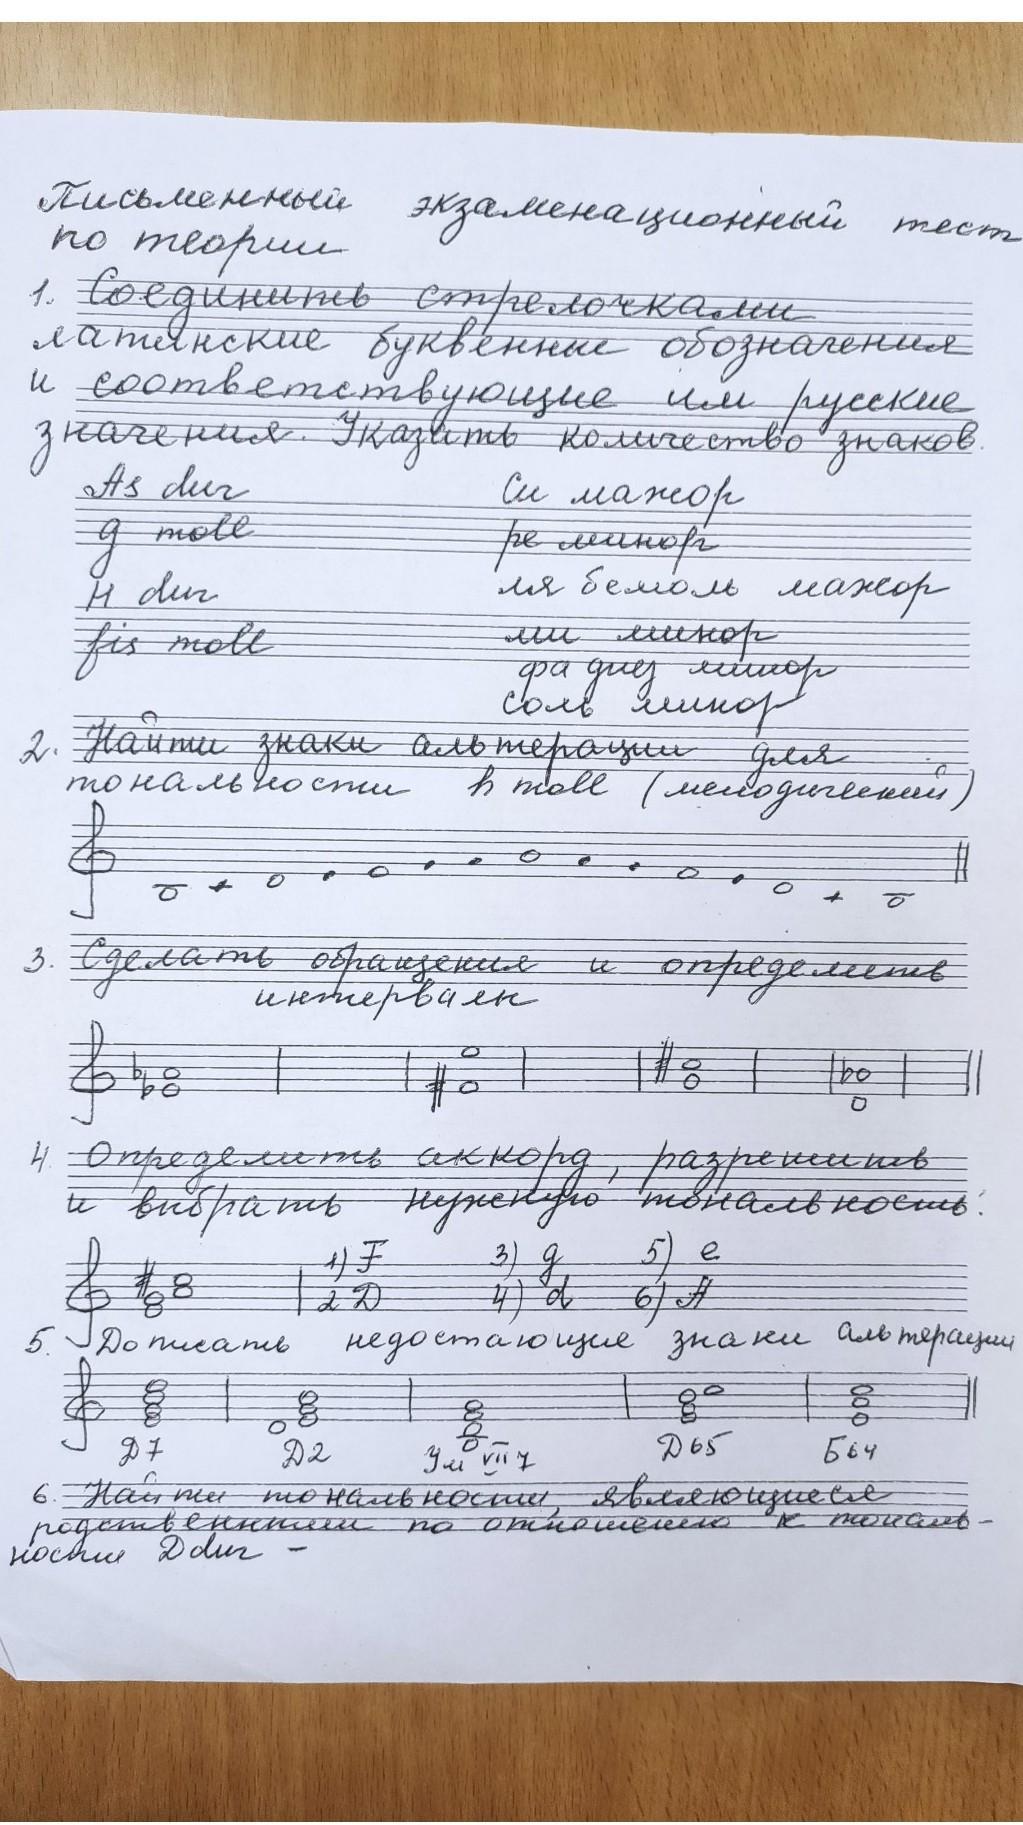 Письменный экзаменационный тест
по теории
1. Соединить стрелочками
латинские буквенные обозначения
и соответствующие им русские
значения. Указать количество знаков.
As dur Си мажор
g moll ре минор
H dur ля бемоль мажор
fis moll ми минор
фа диез минор
соль минор
2. Найти знаки альтерации для
тональности h moll (мелодический)
3. Сделать обращения и определить
интервалы
4. Определить аккорд, разрешить
и выбрать нужную тональность:
1) F 3) g 5) e
2 D 4) d 6) A
5. Дописать недостающие знаки альтерации
Д7 Д2 Ум VII 7 Д65 Б64
6. Найти тональности, являющиеся
родственными по отношению к тональ-
ности D dur -